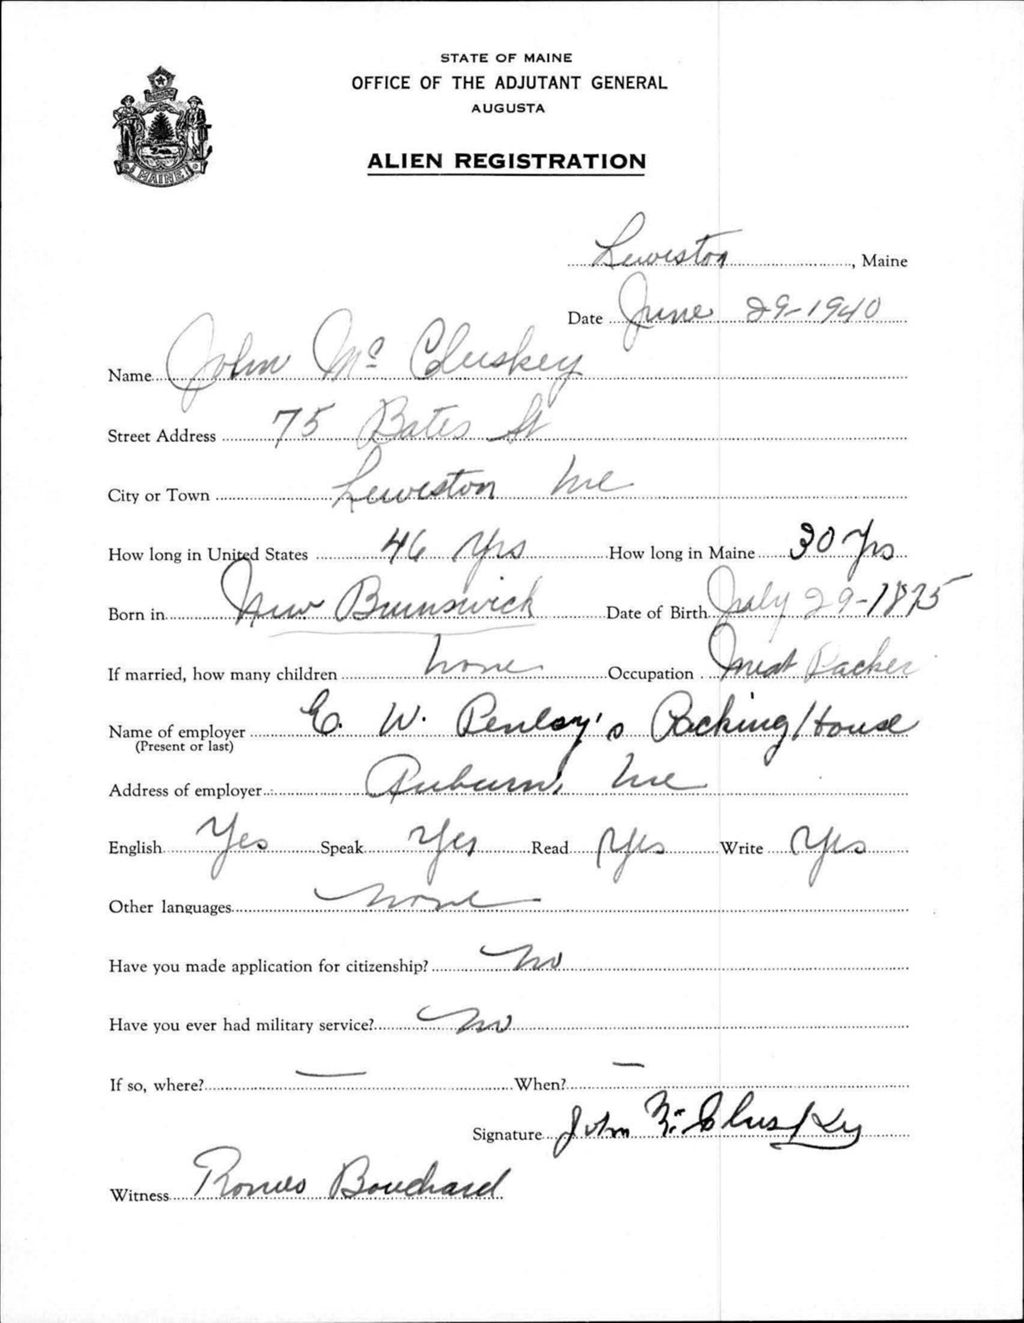 STATE OF MAINE
OFFICE OF THE ADJUTANT GENERAL
AUGUSTA
MAINE
ALIEN REGISTRATION
Lewiston, Maine
Date June 29-1940
Name John Mc Cluskey
Street Address 75 Bates St
City or Town Lewiston Me
How long in United States 46 Yrs How long in Maine 30 Yrs
Born in New Brunswick Date of Birth July 29-1875
If married, how many children none Occupation Meat Packer
Name of employer E. W. Penley's Packing House
(Present or last)
Address of employer Auburn, Me
English Yes Speak Yes Read Yes Write Yes
Other languages none
Have you made application for citizenship? No
Have you ever had military service? No
If so, where? — When? —
Signature John Mc Cluskey
Witness Romeo Bouchard